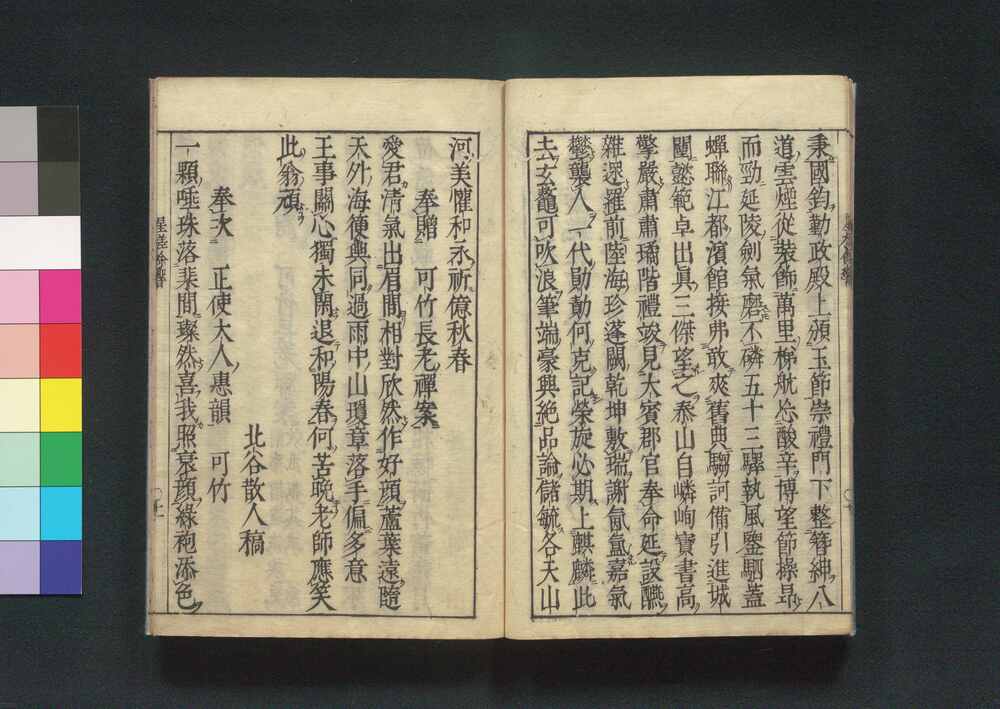 秉國鈞勤政殿上頒玉節崇禮門下整簪紳八
道雲煙從裝飾萬里梯航忩酸辛博望節操昻
而勁延陵劍氣磨不磷五十三驛執風鑒駟蓋
蟬聯江都濱館接弗敢爽舊典騶訶備引進城
闉懿範卓出眞三傑望之泰山自嶙峋寳書高
擎嚴肅肅璚階禮竣見大賓郡官奉命延設醼
雜遝羅前陸海珍蓬闕乾坤敷瑞謝氤氳嘉氣
鬱襲人一代勛勳何克記榮旋必期上麒麟此
去玄鼇可吹浪筆端豪興絶品論儲毓各天山
河美懽和永祈億秋春
奉贈可竹長老禪案
愛君淸氣出眉間相對欣然作好顔蘆葉遠隨
天外海優興同過雨中山瓊章落手偏多意
王事關心獨未閑退和陽春何苦晩老師應笑
此翁頑
北谷散人稿
奉次正使大人惠韻可竹
一顆唾珠落棐間璨然喜我照衰顔綠袍添色